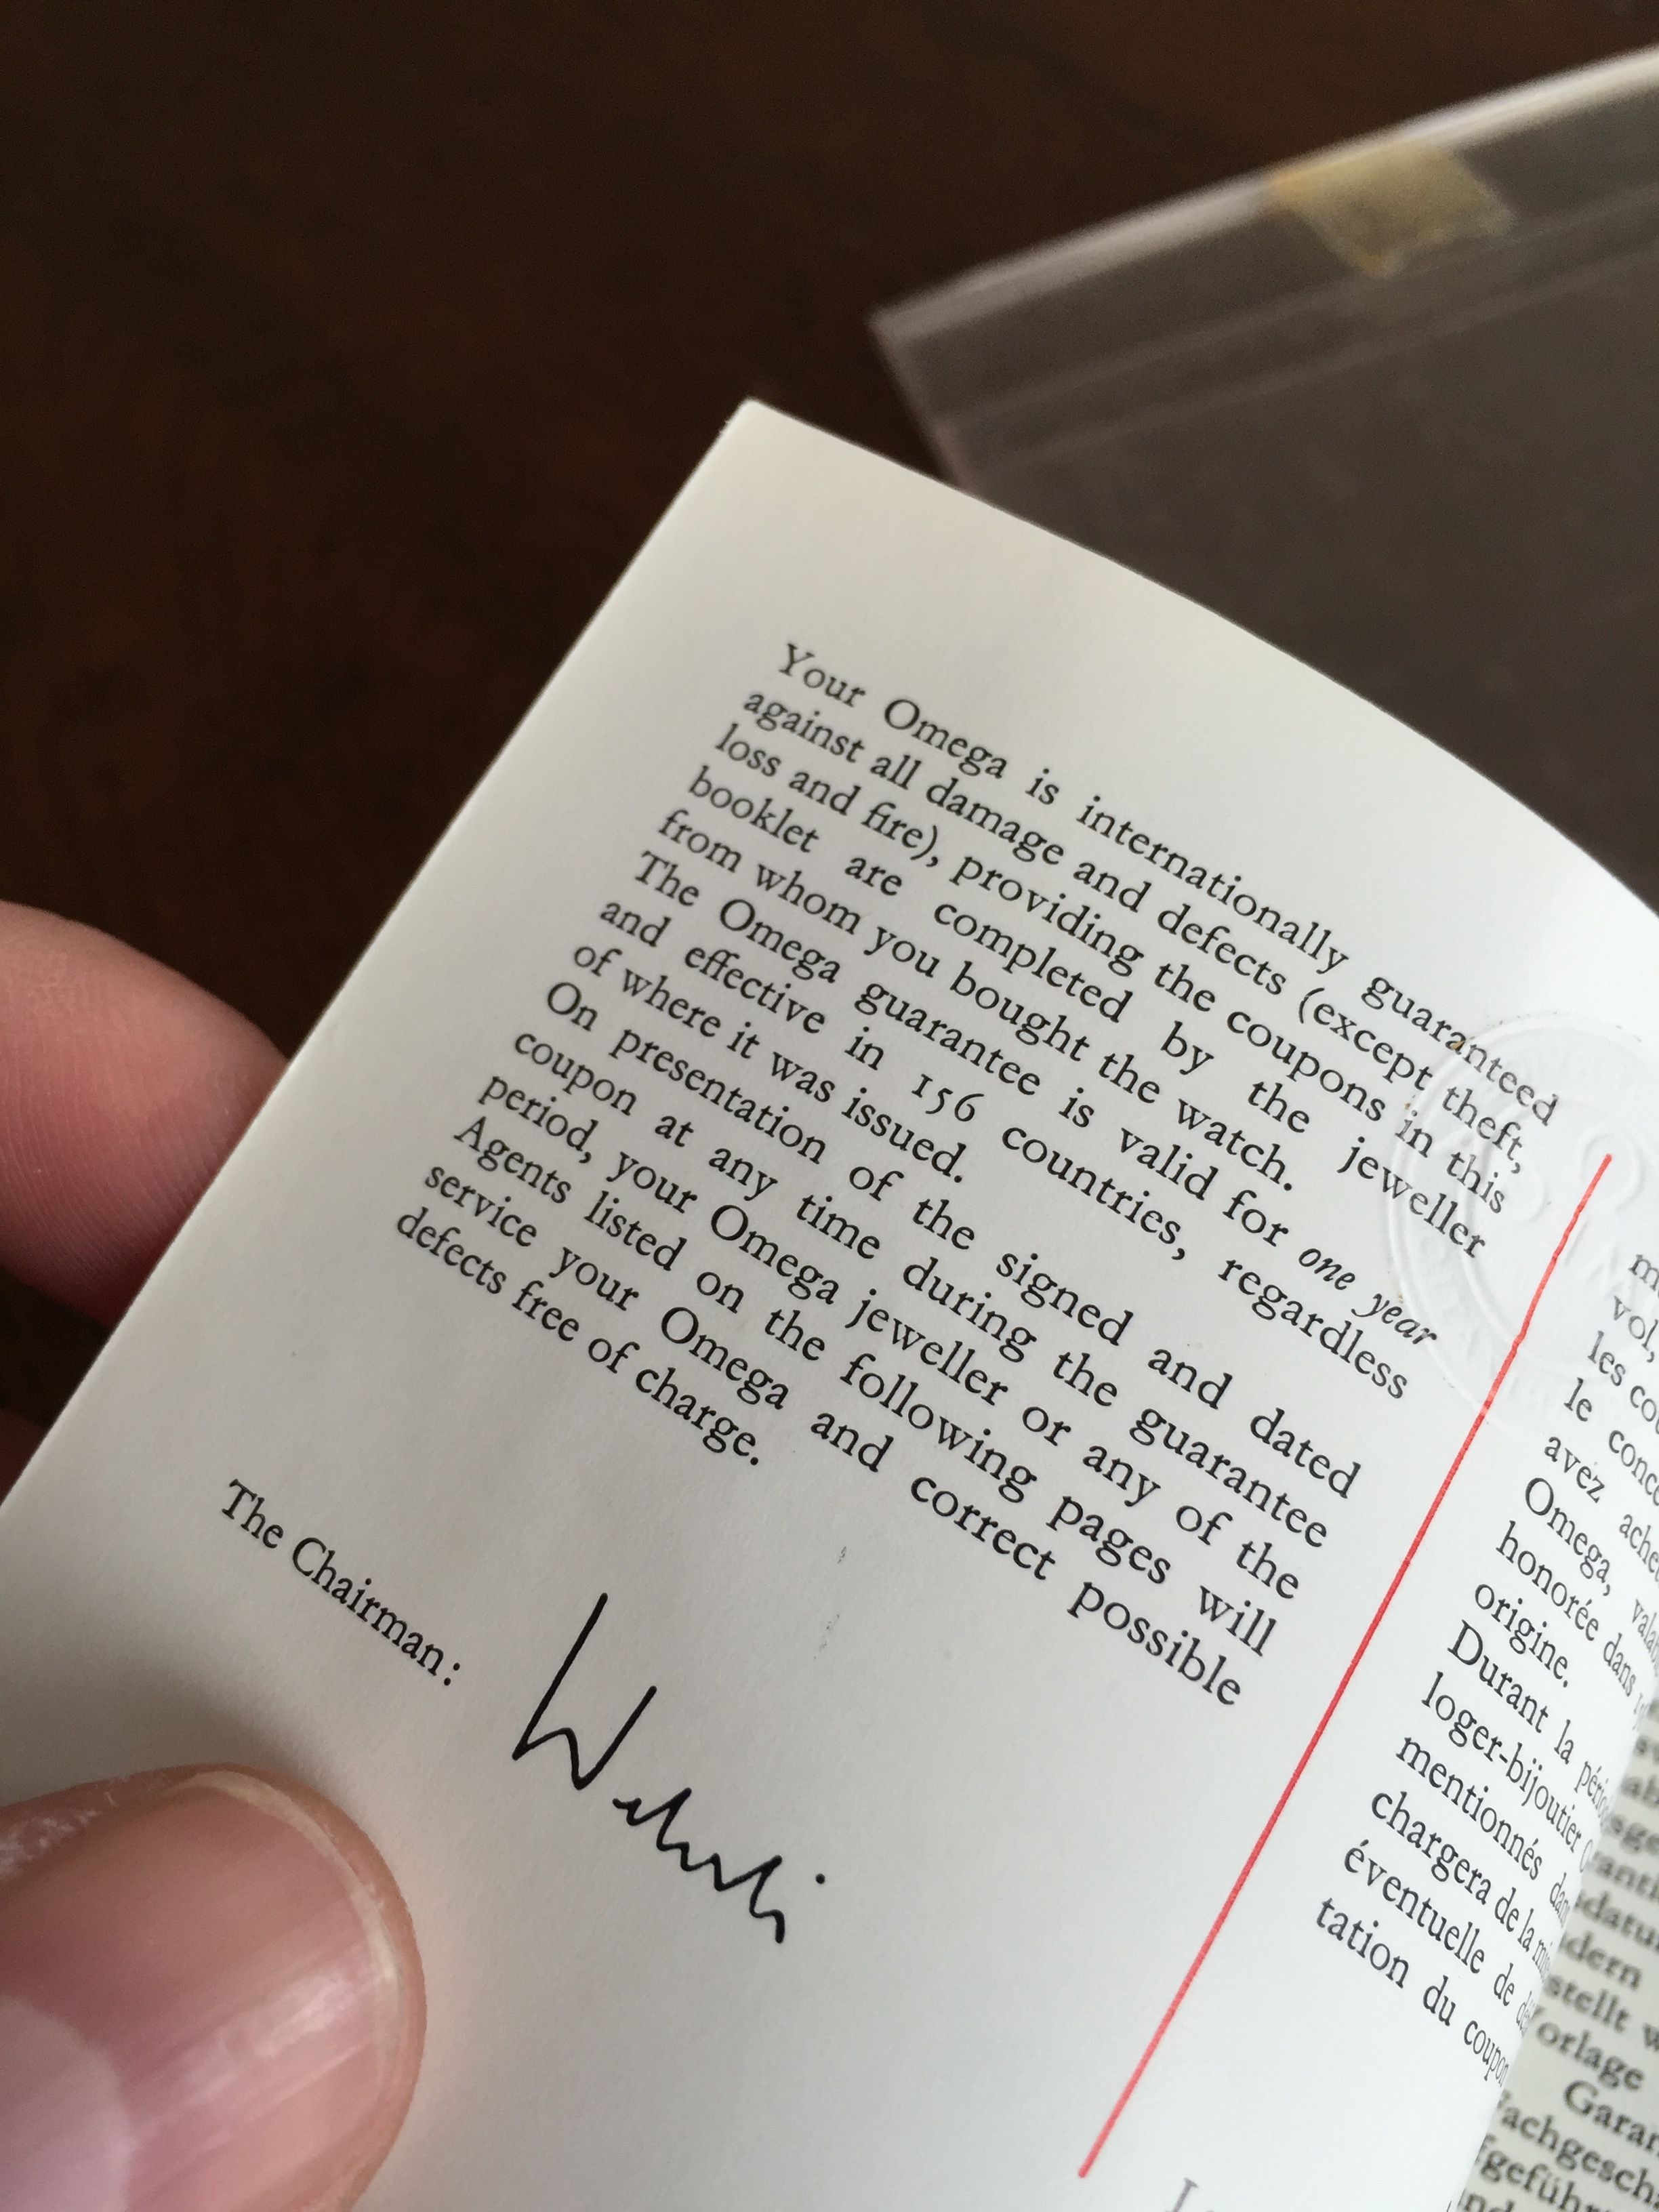 Your Omega is internationally guaranteed
against all damage and defects (except theft,
loss and fire), providing the coupons in this
booklet are completed by the jeweller
from whom you bought the watch.
The Omega guarantee is valid for one year
and effective in 156 countries, regardless
of where it was issued.
On presentation of the signed and dated
coupon at any time during the guarantee
period, your Omega jeweller or any of the
Agents listed on the following pages will
service your Omega and correct possible
defects free of charge.
The Chairman:
vol,
les
le
avez
Omega,
honorée dans
origine.
Durant la
loger-bijoutier
mentionnés
chargera de la
éventuelle de
tation du coupon